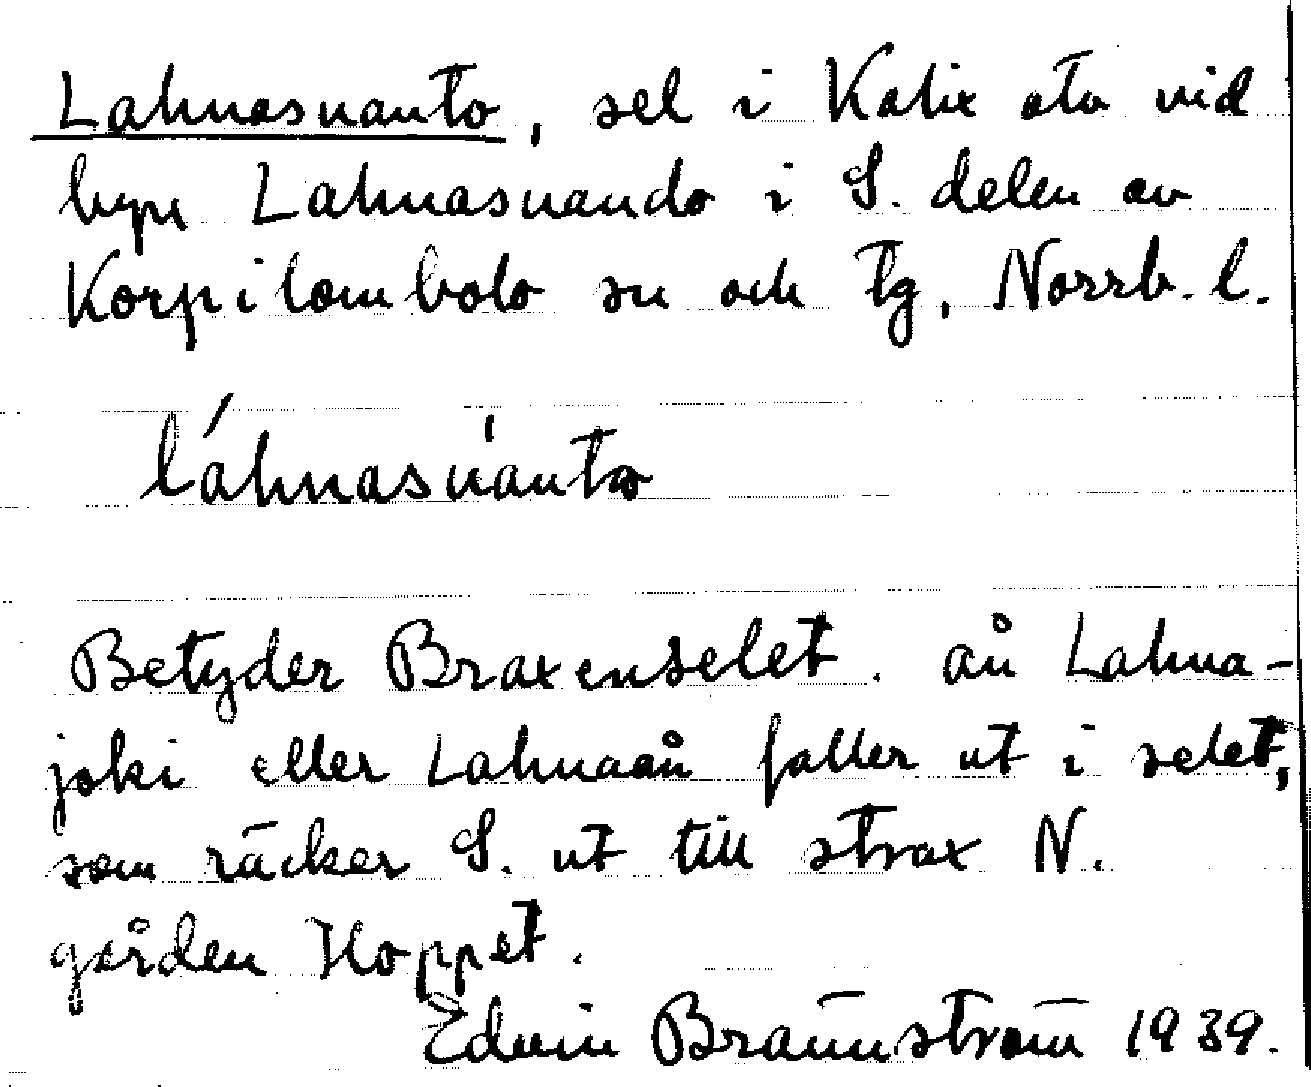 Lahnasuanto, sel i Kalix älv vid
byn Lahnasuando i S. delen av
Korpilombolo sn och tg, Norrb. l.
láhnasu̍anto
Betyder Braxenselet. ån Lahna-
joki eller Lahnaån faller ut i selet,
som räcker S. ut till strax N.
gården Hoppet.
Edvin Brännström 1939.